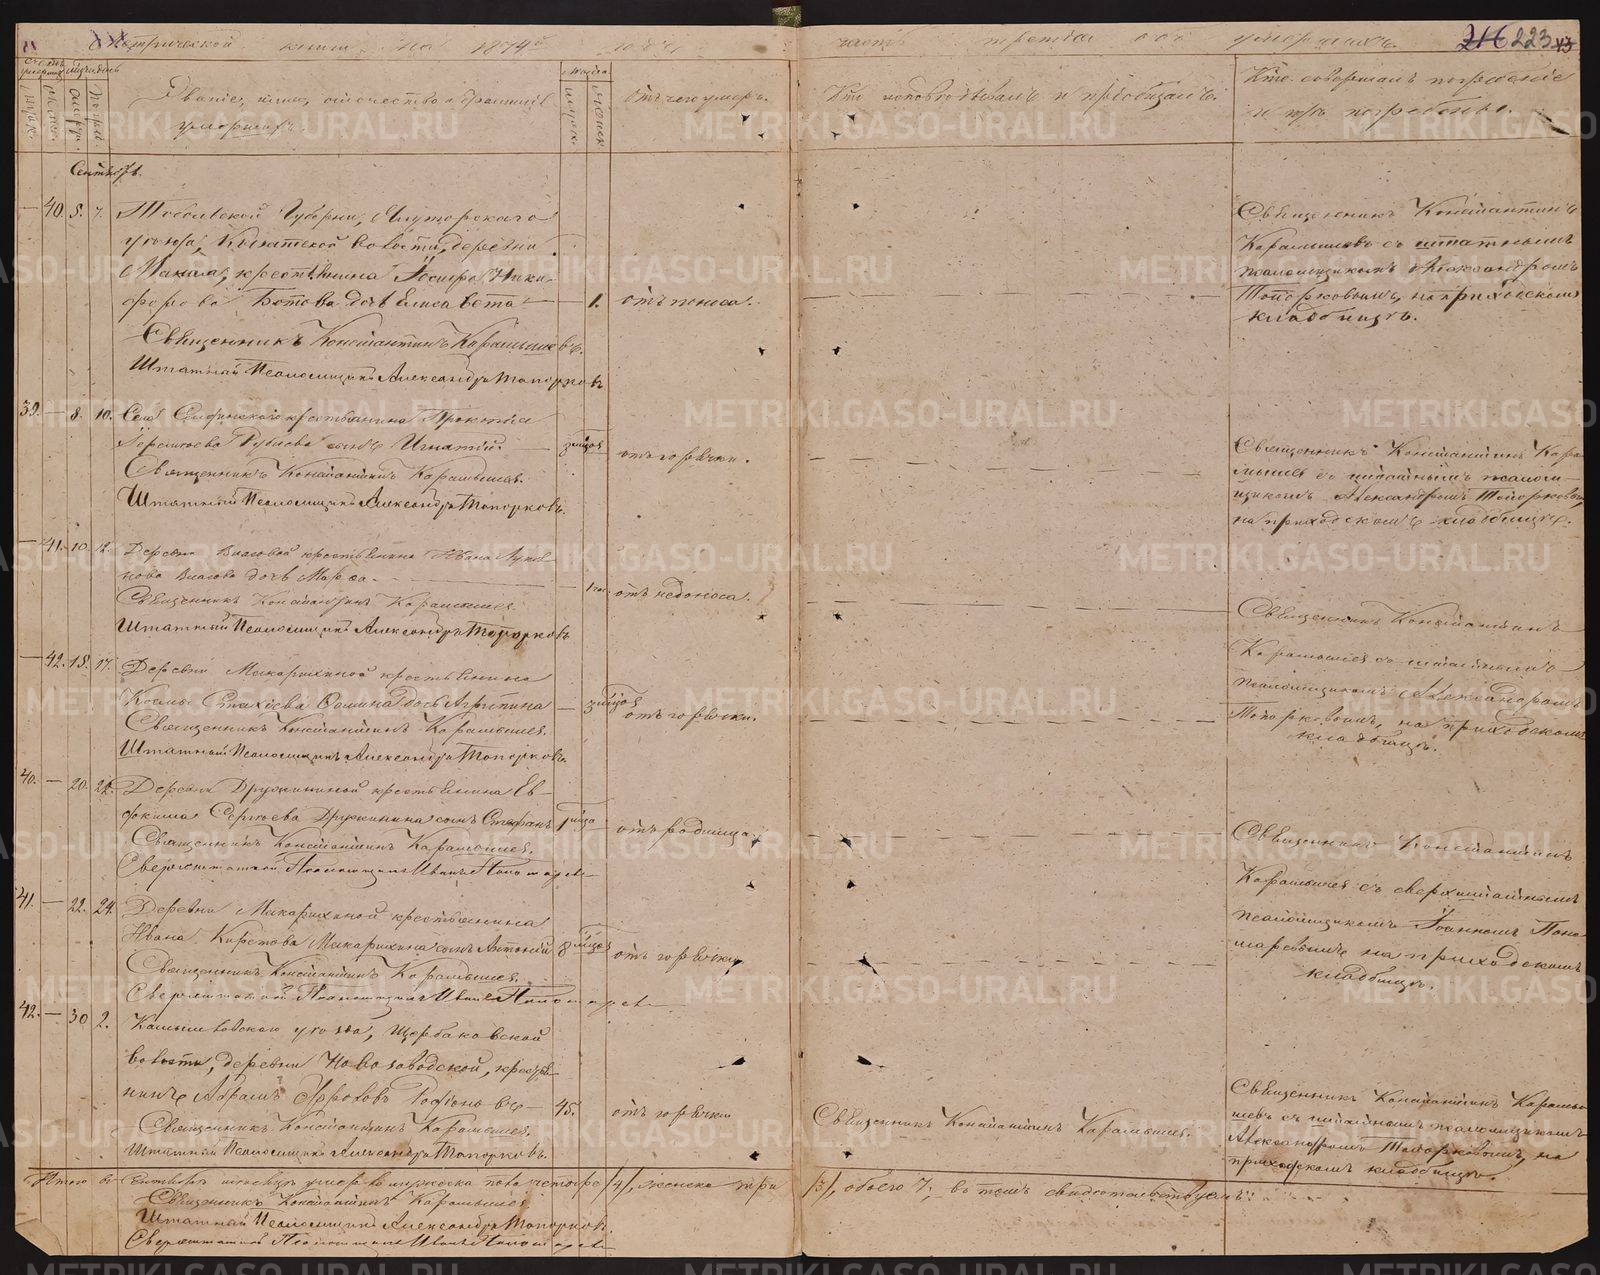 Метрической книги на 1874й годъ часть третья объ умершихъ. 216 223
Счетъ умершихъ
Мѣсяцъ и день
Звание, имя, отчество и фамилія
умершихъ.
Отъ чего умеръ.
Кто исповѣдывалъ и пріобщалъ.
Кто совершалъ погребеніе
и гдѣ погребены.
Сентябрь.
— 40 5. 7. Тобольской Губерніи, Ялуторскаго
уѣзда, волости, деревни
крестьянина Іосифа Ники-
форова Ботова дочь Елисавета — 1. отъ поноса.
Священникъ Константинъ Карамышевъ.
Штатный Псаломщикъ Александръ Топорковъ
Священникъ Константинъ
Карамышевъ съ штатнымъ
псаломщикомъ Александромъ
Топорковымъ, на приходскомъ
кладбищѣ.
39. — 8. 10. крестьянина Прокопія
сынъ Игнатій. отъ горячки.
Священникъ Константинъ Карамышев.
Штатный Псаломщикъ Александръ Топорковъ.
Священникъ Константинъ Кара-
мышев съ штатнымъ псалом-
щикомъ Александромъ Топорковым,
на приходскомъ кладбищѣ.
— 41. 10. 12. Деревни Власовой крестьянина Ивана
Власова дочь Марѳа. отъ недоноса.
Священникъ Константинъ Карамышев.
Штатный Псаломщикъ Александръ Топорковъ
— 42. 15. 17. Деревни Макарихиной крестьянина
Космы дочь Агрипина — отъ горячки.
Священникъ Константинъ Карамышев.
Штатный Псаломщикъ Александръ Топорковъ
Священникъ Константинъ
Карамышев съ штатнымъ
псаломщикомъ Александромъ
Топорковымъ, на приходскомъ
кладбищѣ.
40. — 20. Деревни Дружининой крестьянина Ев-
фимія Сергѣева Дружинина сынъ Стефанъ 1 отъ родимца.
Священникъ Константинъ Карамышев.
Сверхштатный Псаломщикъ Иванъ Пономарев
41. — 22. 24. Деревни Макарихиной крестьянина
Ивана Макарихина сынъ Антоній 8 отъ горячки
Священникъ Константинъ Карамышев.
Сверхштатный Псаломщикъ Иванъ Пономарев
Священникъ Константинъ
Карамышев съ сверхштатнымъ
псаломщикомъ Іоанномъ Поно-
маревымъ на приходскомъ
кладбищѣ.
42. — 30 2. Камышловскаго уѣзда, Щербаковской
волости, деревни Новозаводской, крестья-
нинъ Абрамъ — 45. отъ горячки
Священникъ Константинъ Карамышев.
Священникъ Константинъ Карамышев.
Штатный Псаломщикъ Александръ Топорковъ.
Священникъ Константинъ Карамы-
шевъ съ штатнымъ псаломщикомъ
Александромъ Топорковымъ, на
приходскомъ кладбищѣ.
Итого въ Сентябрѣ мѣсяцѣ умерло мужеска пола четыре /4/, женска три /3/, обоего 7, въ томъ свидѣтельствуемъ:
Священникъ Константинъ Карамышев.
Штатный Псаломщикъ Александръ Топорковъ.
Сверхштатный Псаломщикъ Иванъ Пономарев
METRIKI.GASO-URAL.RU